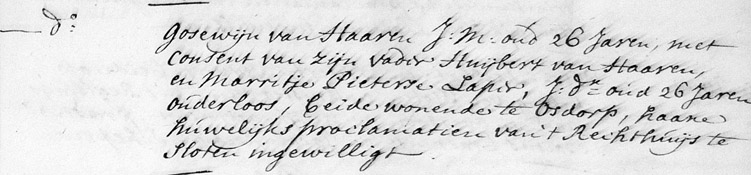 d:o Gosewijn van Haaren J:M: oud 26 Jaren, met
consent van zijn vader Huijbert van Haaren,
en Marritje Pieterse Lapir, J:d:r oud 26 Jaren
ouderloos, beide wonende te Osdorp, haare
huwelijks proclamatien van 't Rechthuijs te
Sloten ingewilligt.